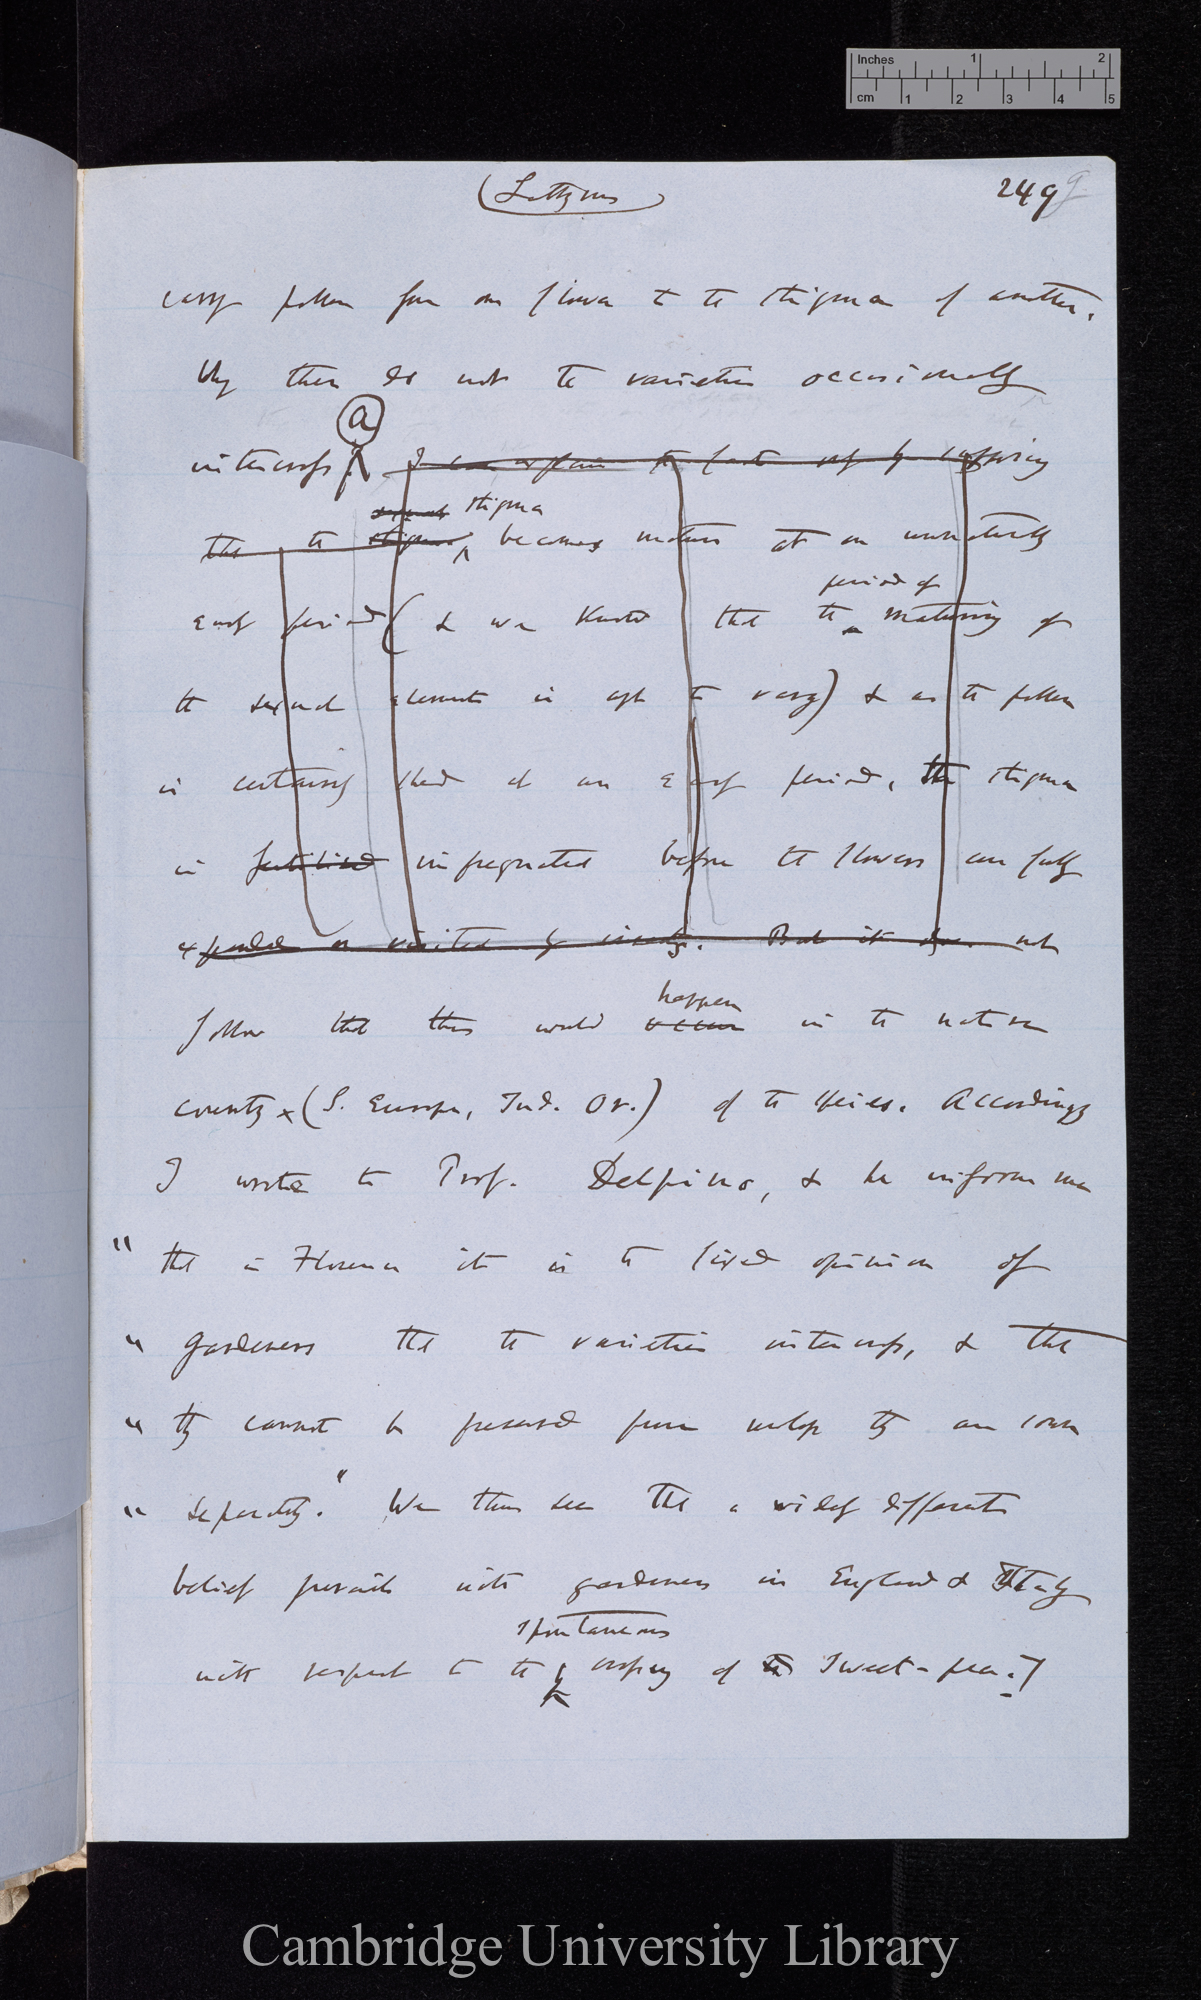 Inches 1 2
cm 1 2 3 4 5
(Lathyrus)
249
carry pollen from one flower to the stigma of another.
Why then do not the varieties occasionally
a
intercross I can explain the fact only by supposing
stigma
that the stigma becomes mature at an unusually
period of
early period (& we know that the maturing of
the sexual elements is apt to vary) & as the pollen
is certainly shed at an early period, the stigma
is fertilised impregnated before the flowers are fully
expanded or visited by insects. But it does not
happen
follow that this would occur in the native
country (S. Europe, Ind. Or.) of the species. Accordingly
I wrote to Prof. Delpino, & he informs me
" that in Florence it is the fixed opinion of
" gardeners that the varieties intercross, & that
" they cannot be preserved pure unless they are sown
" separately." We thus see that a widely different
belief prevails with gardeners in England & Italy
spontaneous
with respect to the crossing of the Sweet-pea.
Cambridge University Library